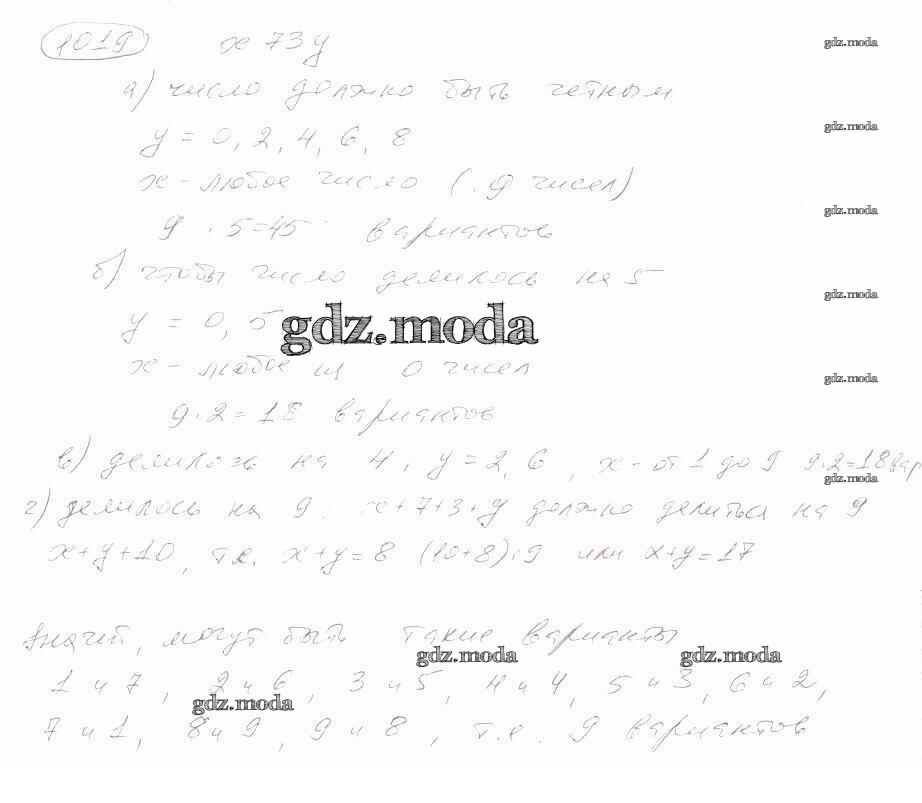 1019 x 73 y gdz.moda
а) число должно быть четным
gdz.moda
y = 0, 2, 4, 6, 8
x - любое число (9 чисел)
gdz.moda
9 · 5 = 45 вариантов
б) чтобы число делилось на 5
gdz.moda
y = 0, 5 gdz.moda
x - любое из 0 чисел
gdz.moda
9 · 2 = 18 вариантов
в) делилось на 4, y = 2, 6, x - от 1 до 9 9·2=18 вар
gdz.moda
г) делилось на 9: x + 7 + 3 + y должно делиться на 9
x + y + 10, т.е. x + y = 8 (10+8):9 или x + y = 17
Значит, могут быть такие варианты
gdz.moda gdz.moda
1 и 7, 2 и 6, 3 и 5, 4 и 4, 5 и 3, 6 и 2,
gdz.moda
7 и 1, 8 и 9, 9 и 8, т.е. 9 вариантов